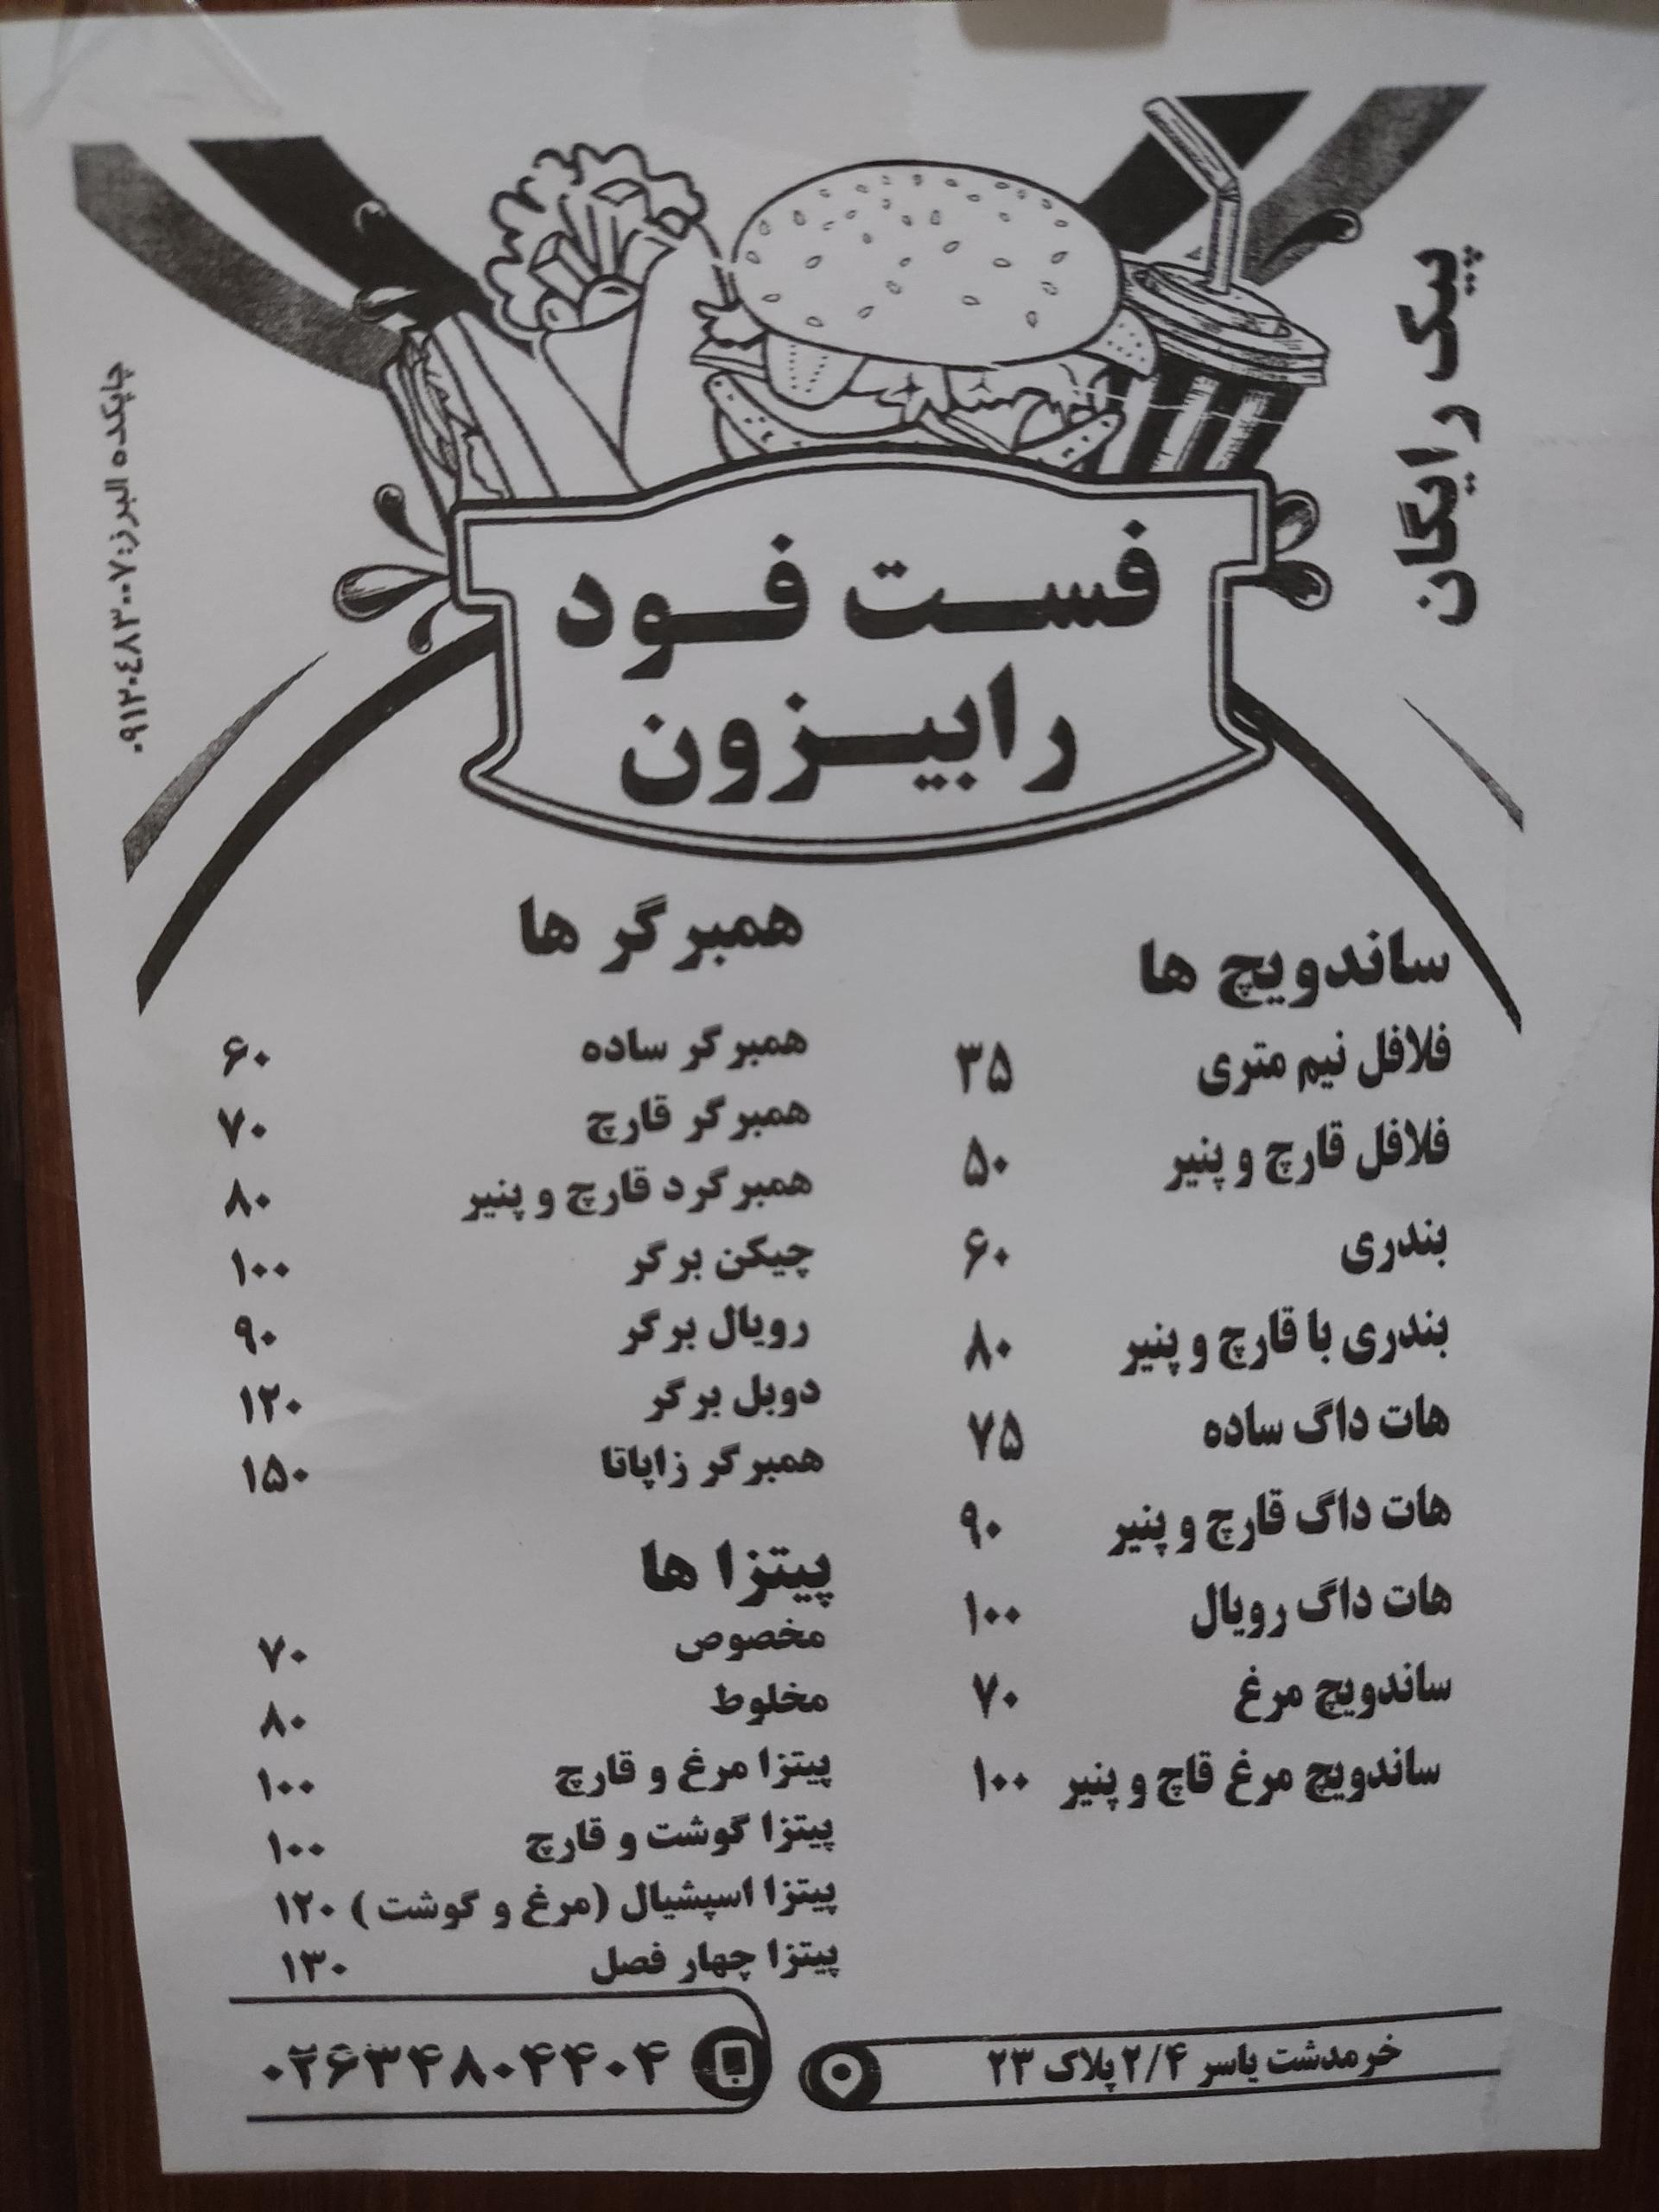 پیک رایگان
چاپکده البرز: ۰۹۱۲۰۴۸۳۰۰۷
فست فود
رابیزون
ساندویچ ها
فلافل نیم متری ۳۵
فلافل قارچ و پنیر ۵۰
بندری ۶۰
بندری با قارچ و پنیر ۸۰
هات داگ ساده ۷۵
هات داگ قارچ و پنیر ۹۰
هات داگ رویال ۱۰۰
ساندویچ مرغ ۷۰
ساندویچ مرغ قاچ و پنیر ۱۰۰
همبرگر ها
همبرگر ساده ۶۰
همبرگر قارچ ۷۰
همبرگرد قارچ و پنیر ۸۰
چیکن برگر ۱۰۰
رویال برگر ۹۰
دوبل برگر ۱۲۰
همبرگر زاپاتا ۱۵۰
پیتزا ها
مخصوص ۷۰
مخلوط ۸۰
پیتزا مرغ و قارچ ۱۰۰
پیتزا گوشت و قارچ ۱۰۰
پیتزا اسپشیال (مرغ و گوشت) ۱۲۰
پیتزا چهار فصل ۱۳۰
خرمدشت یاسر ۲/۴ پلاک ۲۳
۰۲۶۳۴۸۰۴۴۰۴